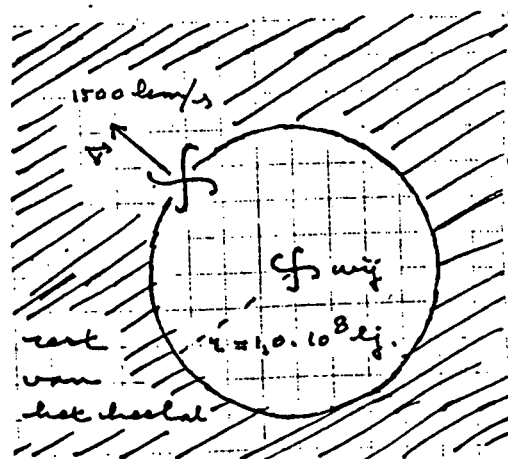 1500 km/s
v
wij
r = 1,0 · 10⁸ lj.
rest
van
het heelal